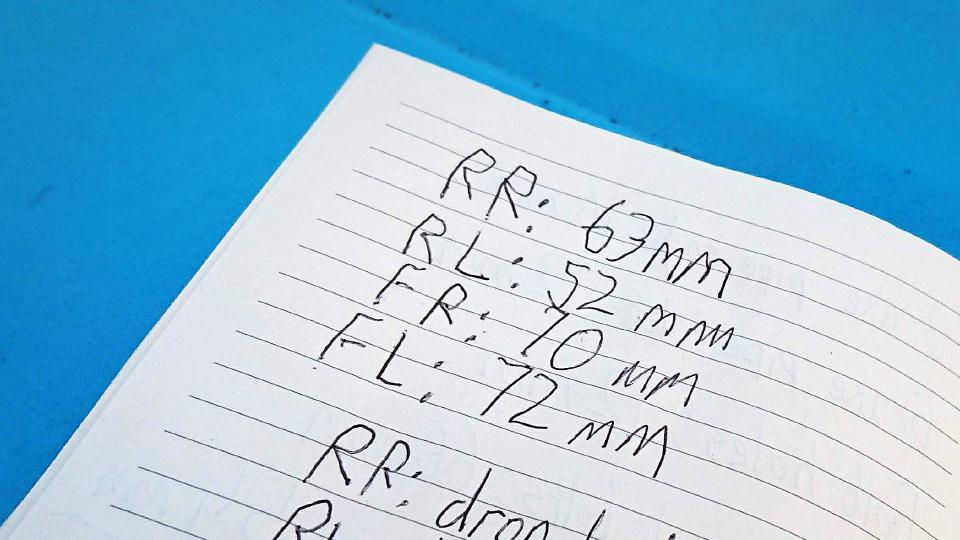 RR: 63mm
RL: 52 mm
FR: 70 mm
FL: 72 mm
RR: